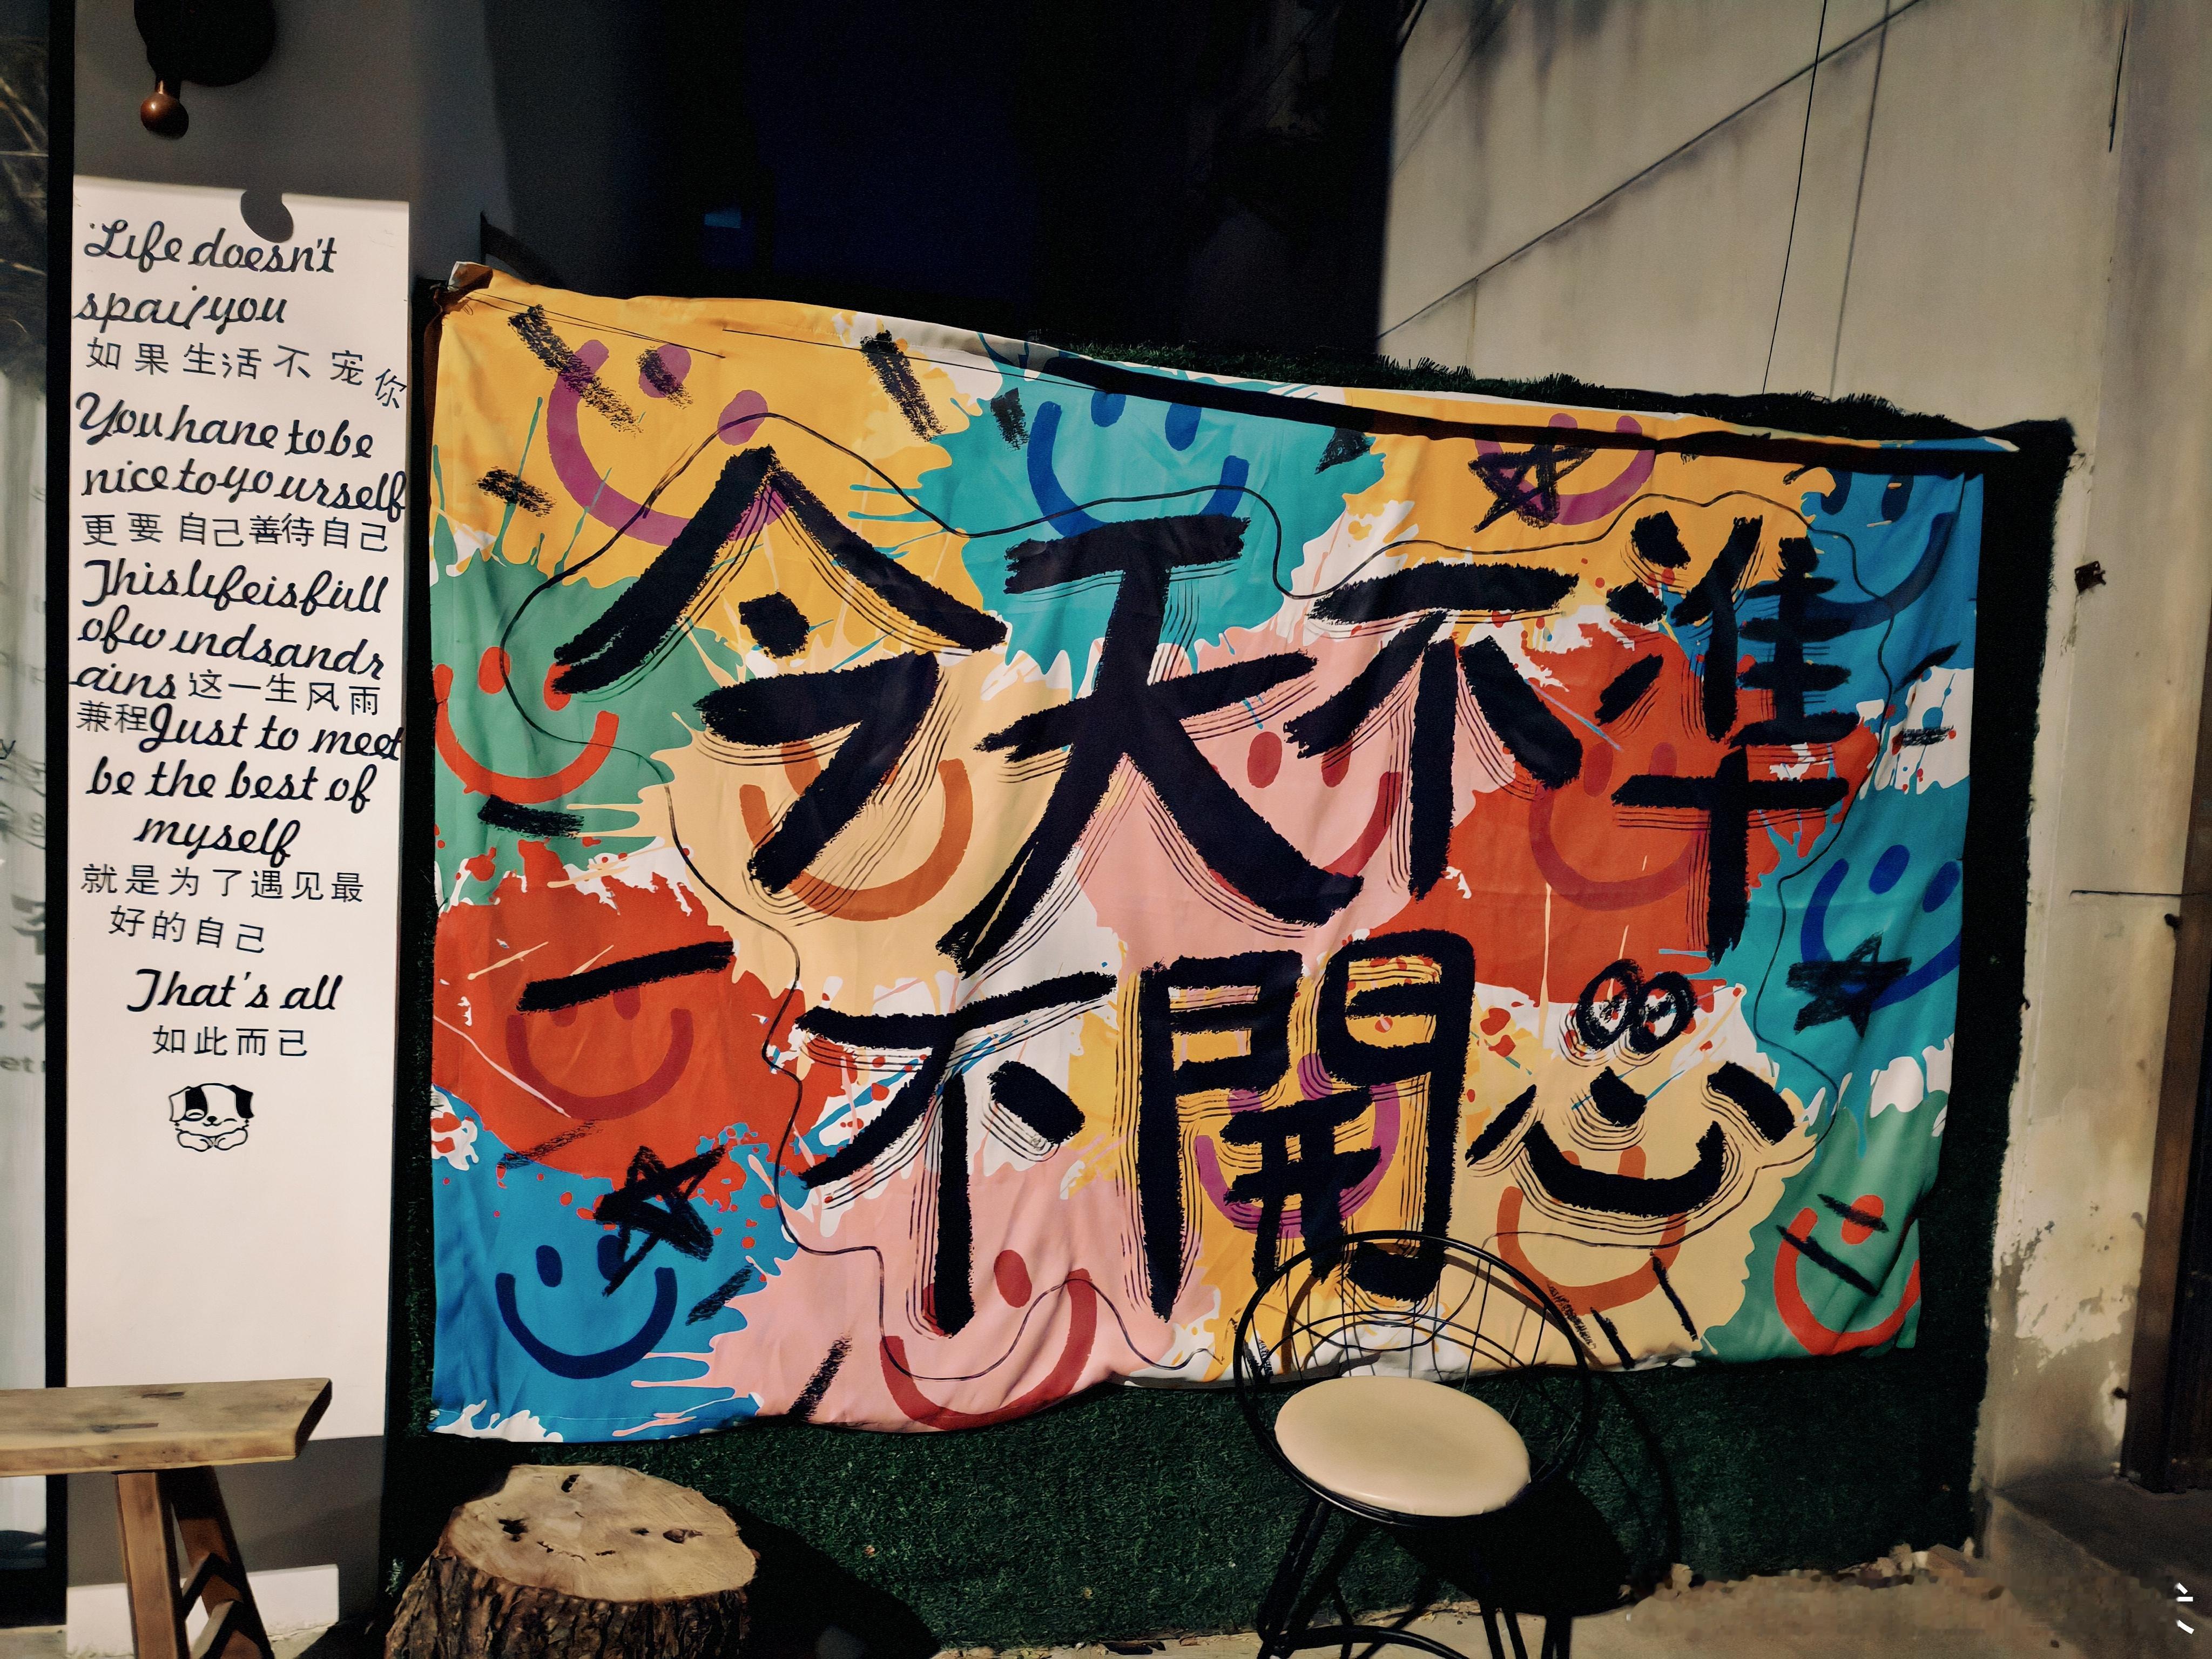 Life doesn't
spail you
如果生活不宠你
You hane to be
nice to yourself
更要自己善待自己
This life is full
of w inds and r
ains 这一生风雨
兼程 Just to meet
be the best of
myself
就是为了遇见最
好的自己
That's all
如此而己
今天不準
不開心